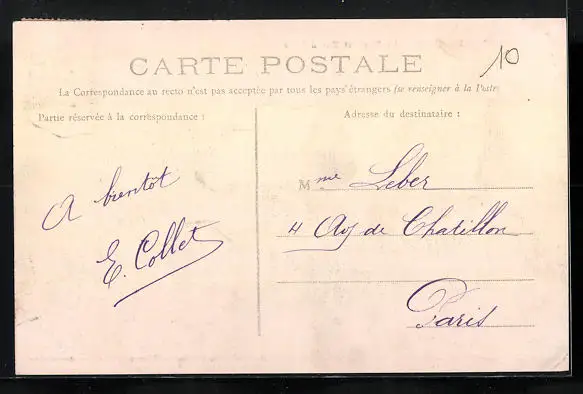 10
CARTE POSTALE
La Correspondance au recto n'est pas acceptée par tous les pays étrangers (se renseigner à la Poste
Partie réservée à la correspondance :
Adresse du destinataire :
A bientôt
E. Collet
Mme Leber
4 Av de Chatillon
Paris